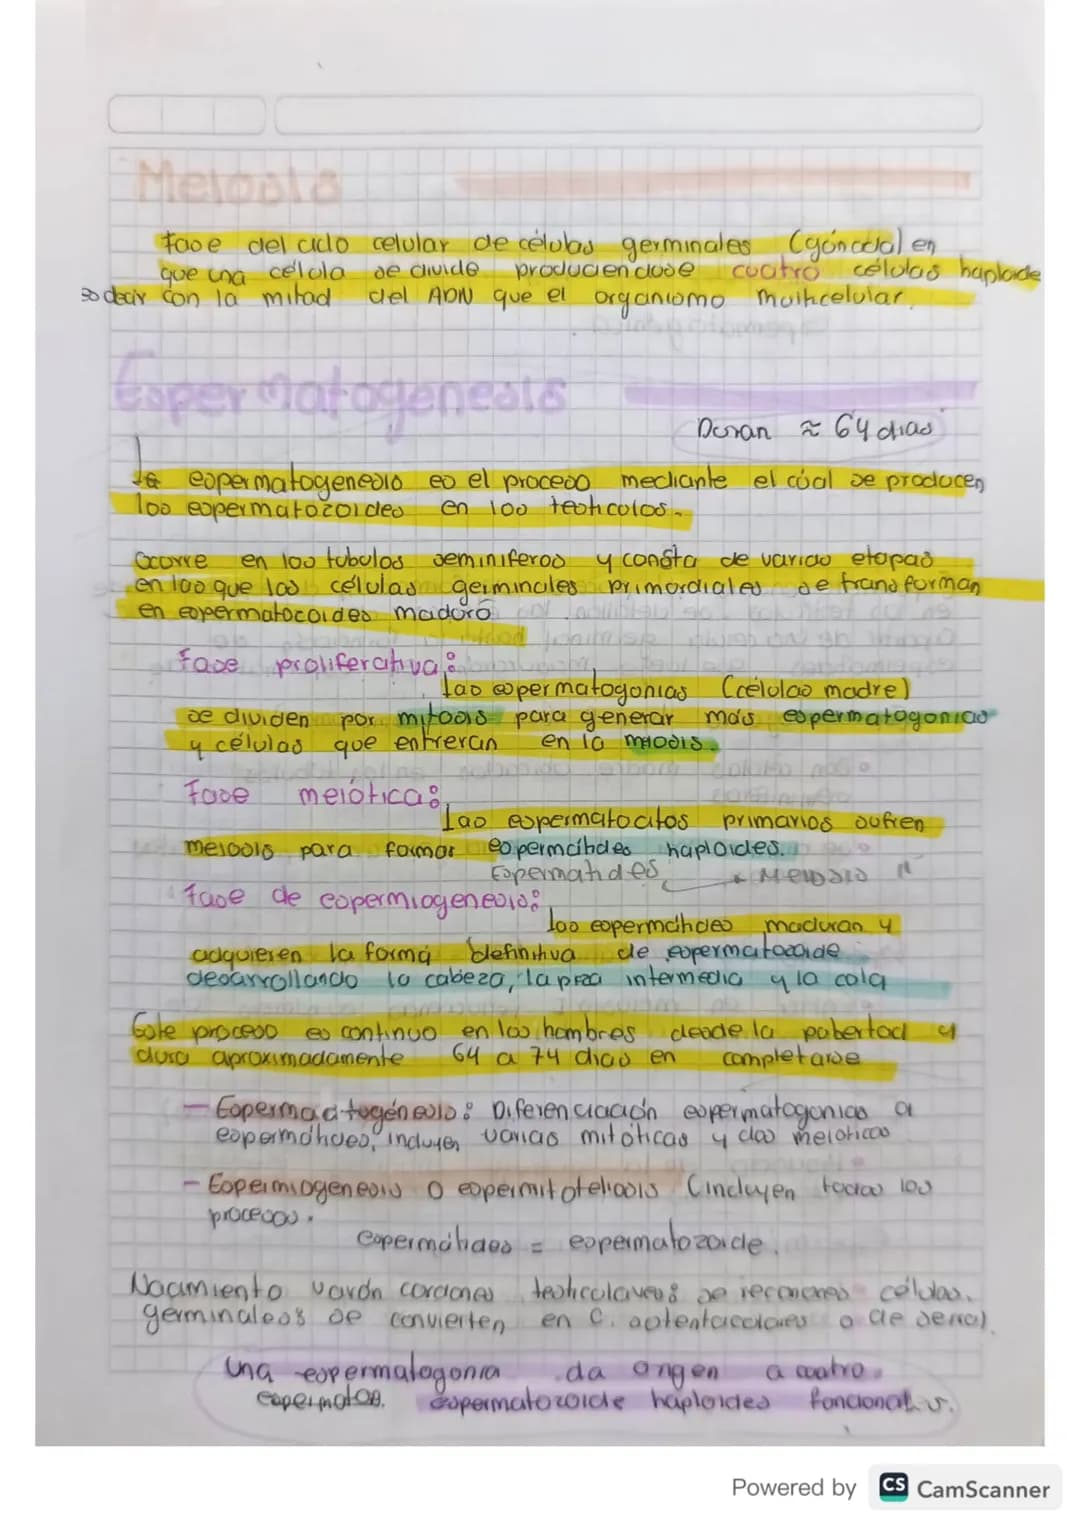 Meiosis
fase del ciclo celular de células germinales (gónada) en
que una célula se divide produciendose cuatro células haploide
es decir con la mitad del ADN que el organismo multicelular.
Espermatogenesis
Duran ≈ 64 dias
la espermatogenesis es el proceso mediante el cúal se producen
los espermatozoides en los testiculos.
Ocorre en los tubulos seminiferos y consta de varias etapas
en las que las células germinales primordiales se transforman
en espermatocoides maduro
Fase proliferativa:
las espermatogonias (células madre)
se dividen por mitosis para generar más espermatogonias
y células que entreran en la miosis.
Fase meiótica:
Las espermatocitos primarios sufren
meiosis para formar espermátides haploides.
Espermatides Meiosis II
Fase de espermiogenesis:
las espermatides maduran y
adquieren la forma definitiva de espermatozoide
desarrollando la cabeza, la pieza intermedia y la cola
Este proceso es continuo en los hombres desde la pubertad y
dura aproximadamente 64 a 74 dias en completarse
- Espermatogénesis: Diferenciación espermatogonias a
espermátides, incluyen varias mitóticas y dos meioticas
- Espermiogenesis o espermitoteliosis (incluyen todas los
procesos.
espermátides = espermatozoide.
Nacimiento varón cordones testiculares: se reconores células.
germinales: se convierten en C. sustentaculares o de sertoli
Una espermatogonia da origen a cuatro
espermatozoide haploides funcionales.